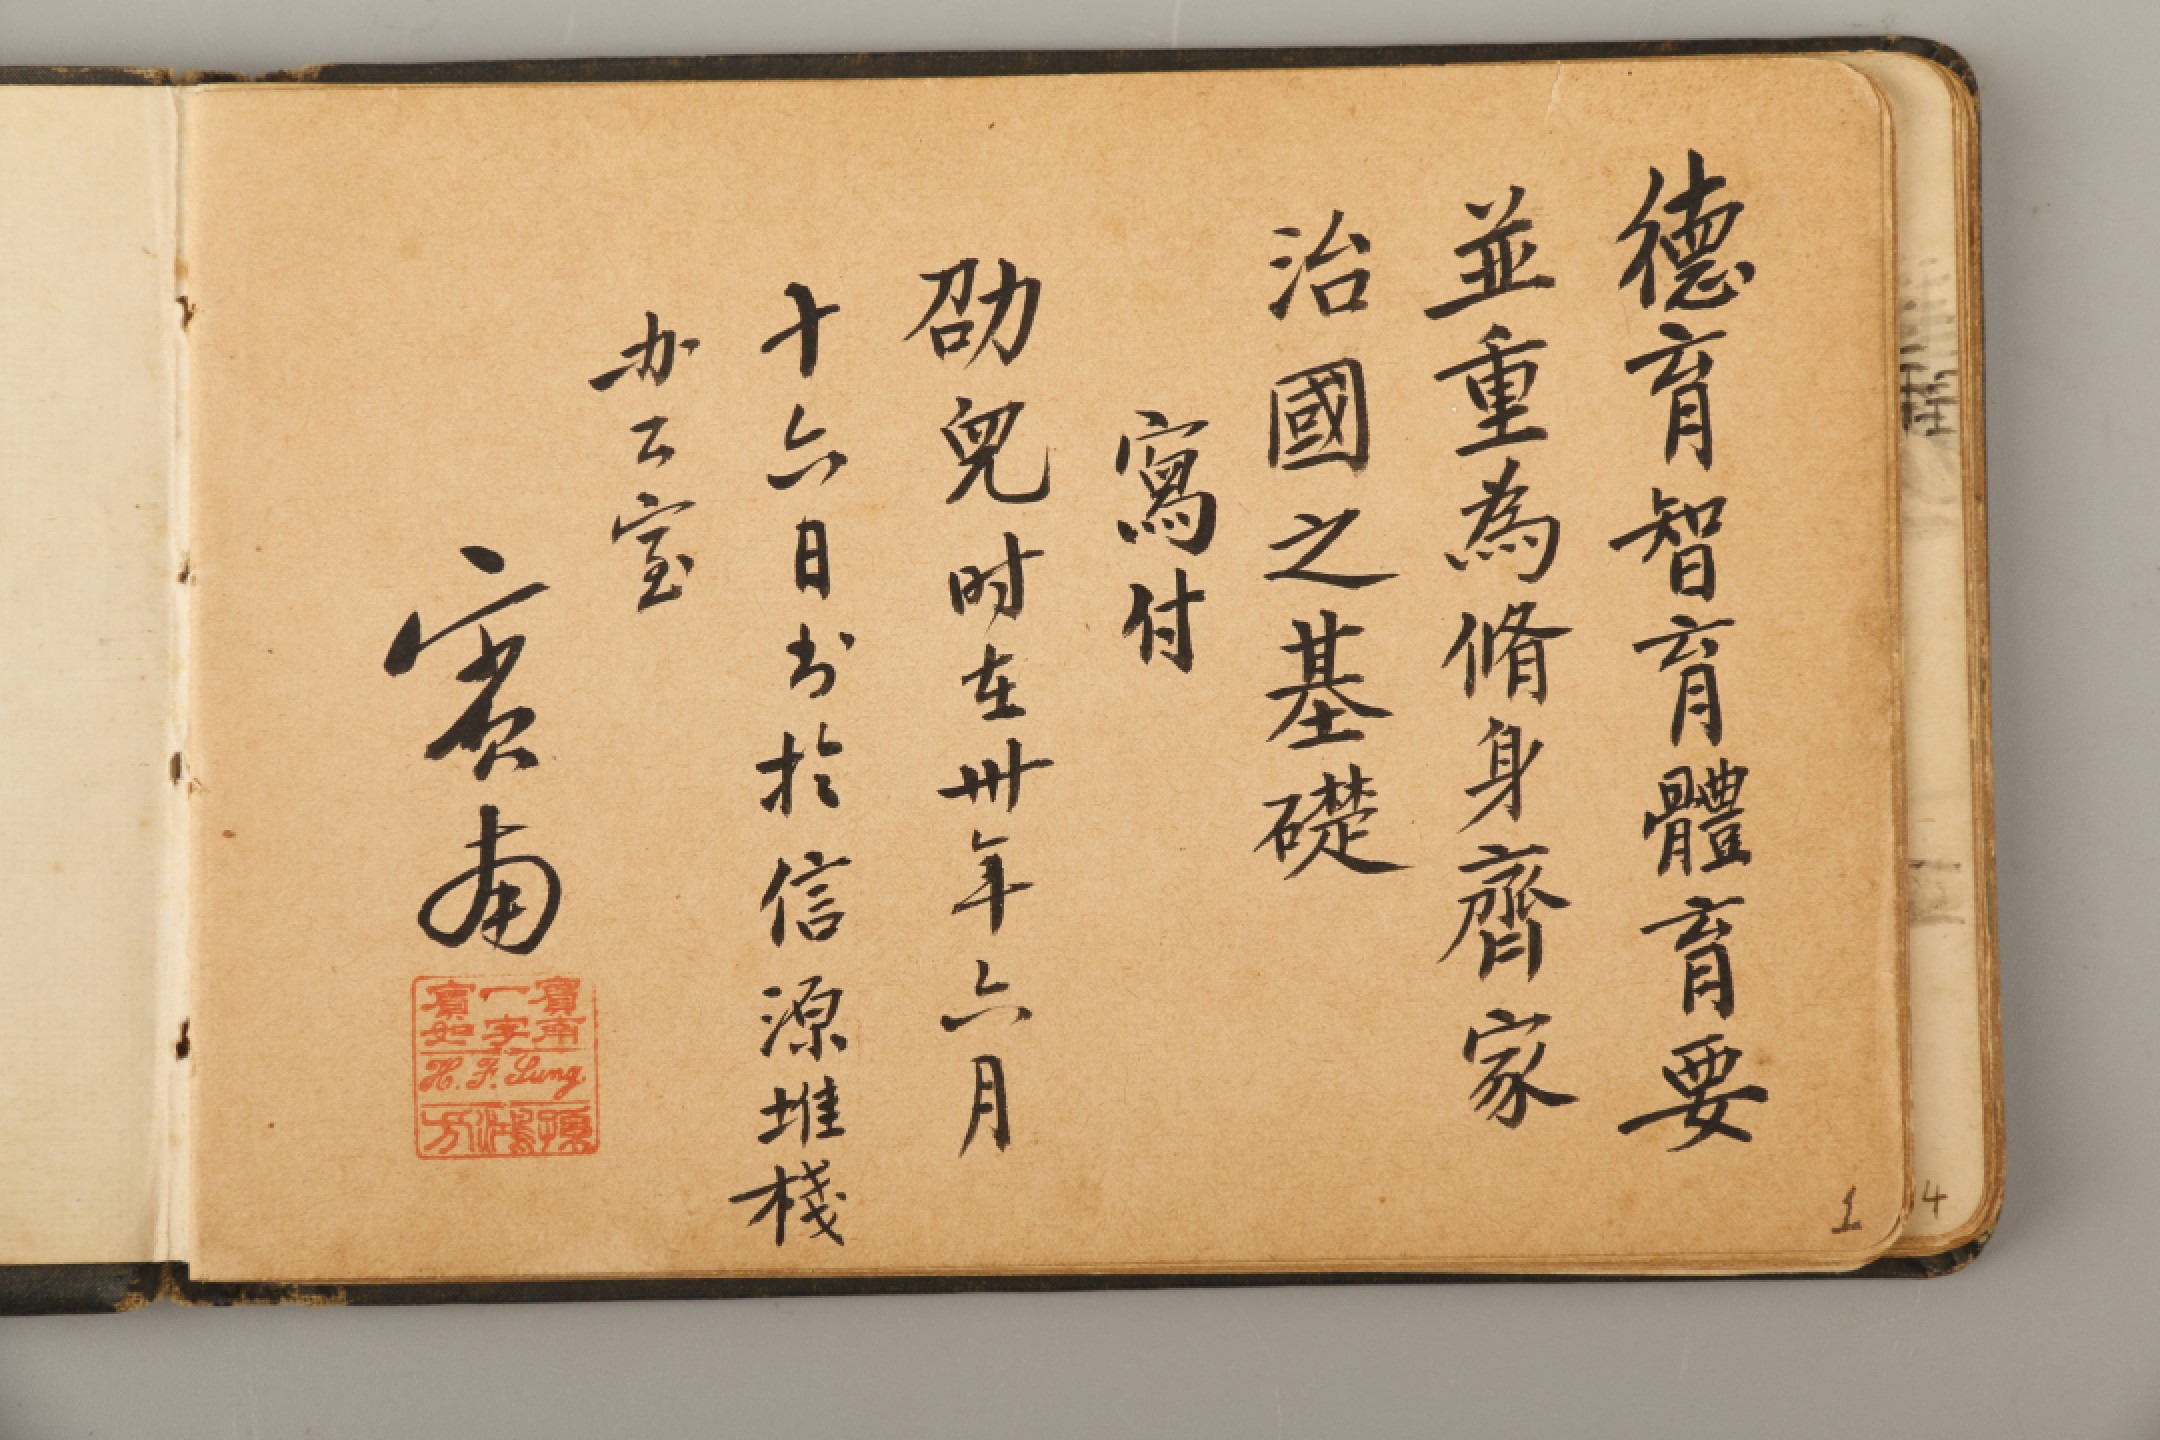 德育智育體育要
並重為脩身齊家
治國之基礎
寫付
劭兒时在卅年六月
十六日书於信源堆棧
办公室
賓甫
賓甫
一字
賓如
H. F. Sung.
孫鴻方
1
14